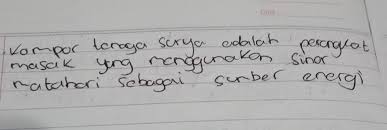 Kompor tenaga surya adalah perangkat
masak yang menggunakan sinar
matahari sebagai sumber energi